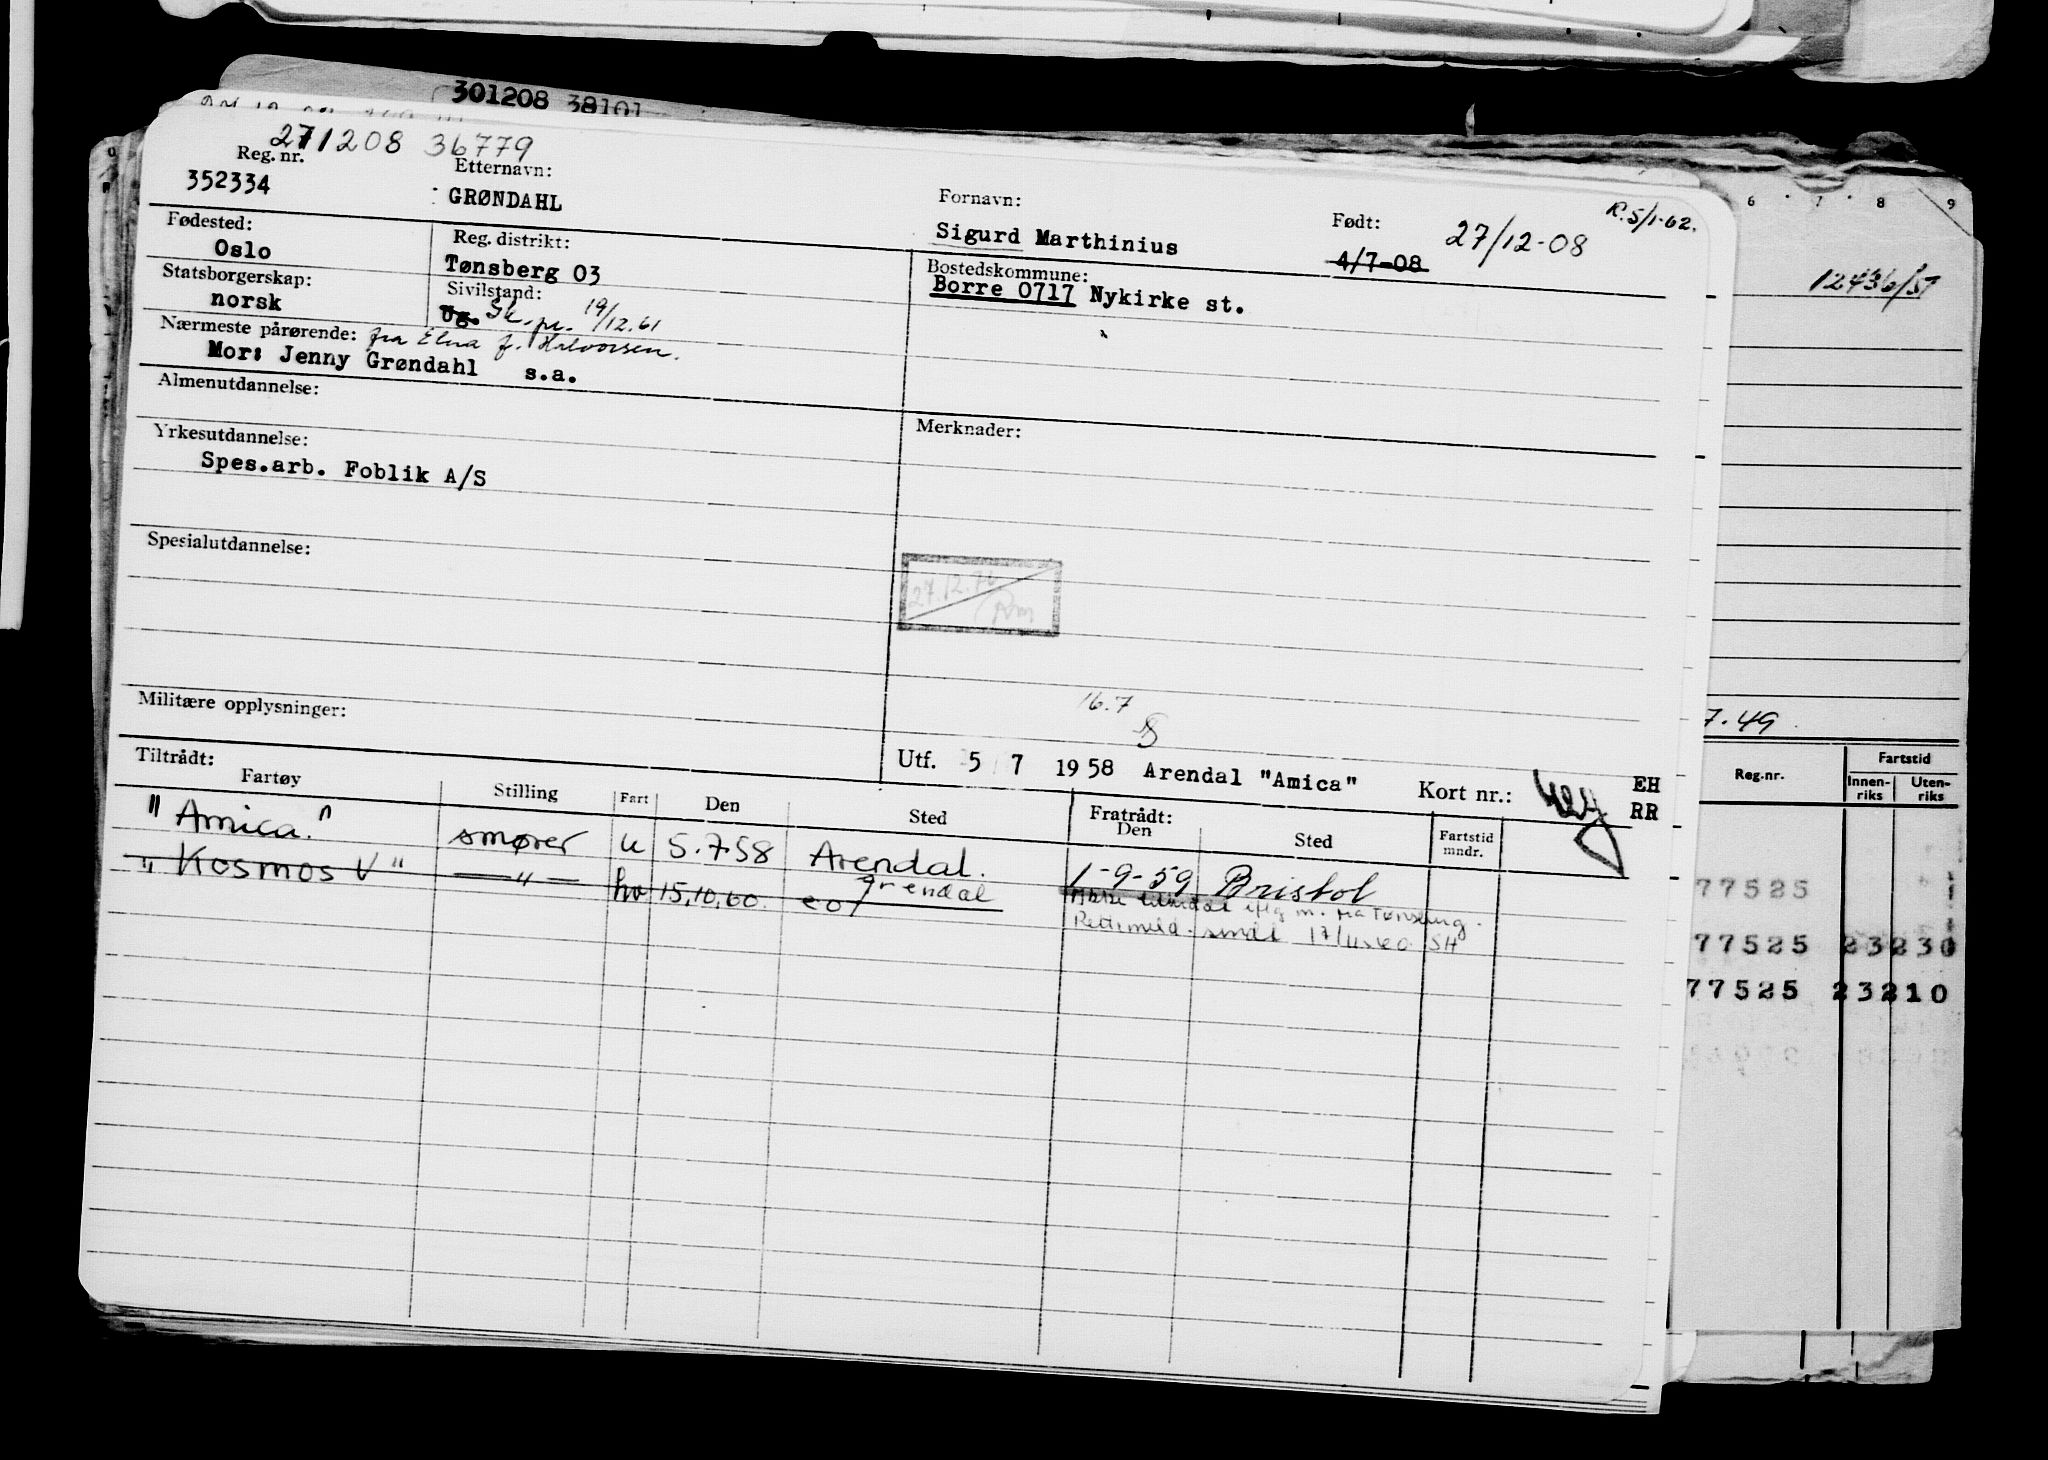 301208 38101
271208 36779
Reg. nr.
352334
Etternavn:
GRØNDAHL
Fornavn:
Sigurd Marthinius
Født:
4/7-08
27/12-08
R. 5/1-62.
Fødested:
Oslo
Reg. distrikt:
Tønsberg 03
Bostedskommune:
Borre 0717 Nykirke st.
Statsborgerskap:
norsk
Sivilstand:
Ug. Sk. pr. 19/12.61
Nærmeste pårørende: fra Elna f. Halvorsen.
Mor: Jenny Grøndahl s.a.
Almenutdannelse:
Merknader:
Yrkesutdannelse:
Spes.arb. Foblik A/S
Spesialutdannelse:
27.12.76
Militære opplysninger:
16.7
Utf. 5 7 1958 Arendal "Amica" Kort nr.: EH
RR
Tiltrådt:
Fartøy Stilling Fart Den Sted Fratrådt:
Den Sted Fartstid
mndr.
"Amica." smører u 5.7.58 Arendal. 1-9-59 Bristol
"Kosmos V" — " — hv 15.10.60. Arendal
Rettimeld. sendt 17/11.60 SH
6 7 8 9
12436/57
7.49
Reg.nr. Fartstid
Innen-
riks Uten-
riks
77525
77525 23230
77525 23210